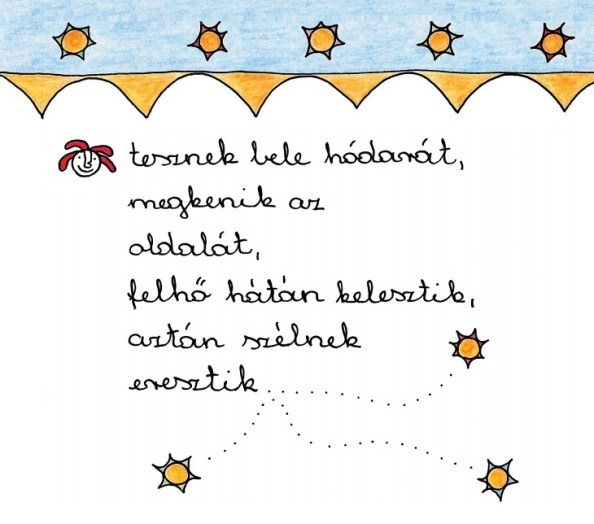 tesznek bele hódarát,
megkenik az
oldalát,
felhő hátán kelesztik,
aztán szélnek
eresztik